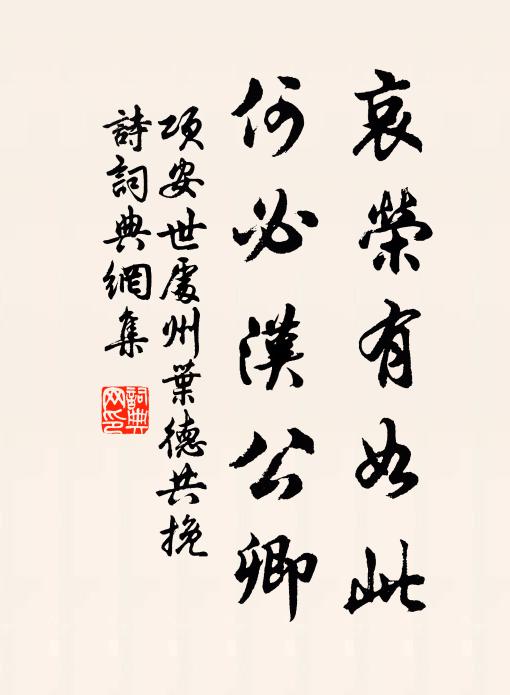 哀榮有如此
何必漢公卿
項安世處州葉德共挽
詩詞典網集
詞典网印